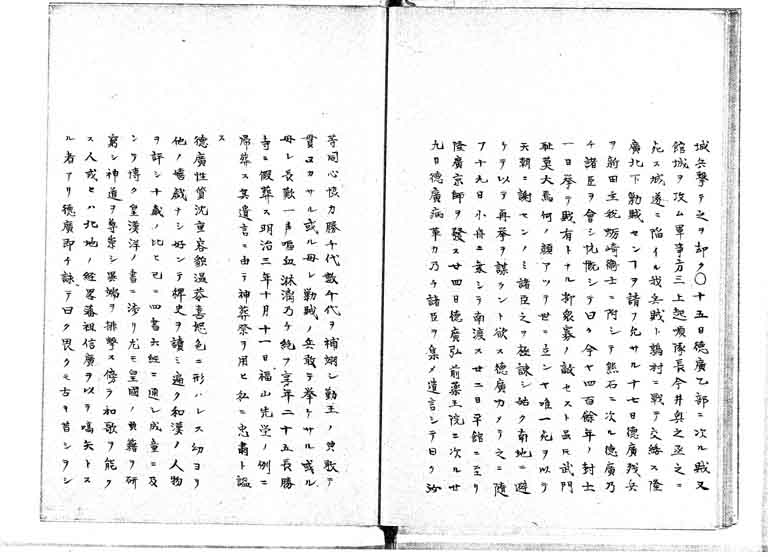 城兵撃テ之ヲ却ク〇十五日徳廣乙部ニ次ル戰又
館城ヲ攻ム軍事方三上超順隊長今井興之丞之ニ
死ス城遂ニ陥イル我兵戰ト鶉村ニ戰テ交綏ス隆
廣北下勤戰センヿヲ請フ允サル十七日徳廣残兵
ヲ新田主税蛎崎衛士ニ附シテ熊石ニ次ル徳廣乃
チ諸臣ヲ會シ忼慨シテ曰ク今ヤ四百餘年ノ封土
一日挙テ戰有トナル衆寡ノ敵セスト虽𪜈武門
耻莫大焉何ノ顔アツテ世ニ立ンヤ唯一死ヲ以テ
天朝ニ謝センノミ諸臣之ヲ極諌シ姑ク南地ニ避
ケテ以テ再挙ヲ謀ラント欲ス徳廣力メテ之ニ随
フ十九日小舟ニ乗シテ南渡ス廿二日平舘ニ至リ
隆廣京師ヲ發ス廿四日徳廣弘前薬王院ニ次ル廿
九日徳廣病革カ乃チ諸臣ヲ集メ遺言シテ曰ク汝
等同心恢力勝千代数千代ヲ補翊シ勤王ノ典戰テ
貫ヌカサル或ル毋レ勤戰ノ兵敢テ挙ケサル或ル
毋レ長歎一声嘔血淋漓乃チ絶フ享年二十五長勝
寺ニ假葬ス明治三年十月十一日福山先塋ノ側ニ
帰葬ス其遺言ニ由テ神葬祭ヲ用ヒ私ニ忠肅ト謚
ス
徳廣性質沈重容貌温恭喜愠色ニ形ハレス幼ヨリ
他ノ嬉戯ナシ好ンテ稗史ヲ讀ミ遍ク和漢ノ人物
ヲ評シ十歳ノ比ヒ已ニ四書六經ニ通シ成童ニ及
ンテ博ク皇漢洋ノ書ニ渉リ尤モ皇國ノ典籍ヲ研
窮シ神道ヲ尊崇シ異端ヲ排撃ス傍ラ和歌ヲ能ク
ス人或ヒハ北地ノ經畧藩祖信廣ヲ以テ嚆矢トス
ル者アリ徳廣即チ詠テ曰ク畏クモ古ヲ昔シヲシ